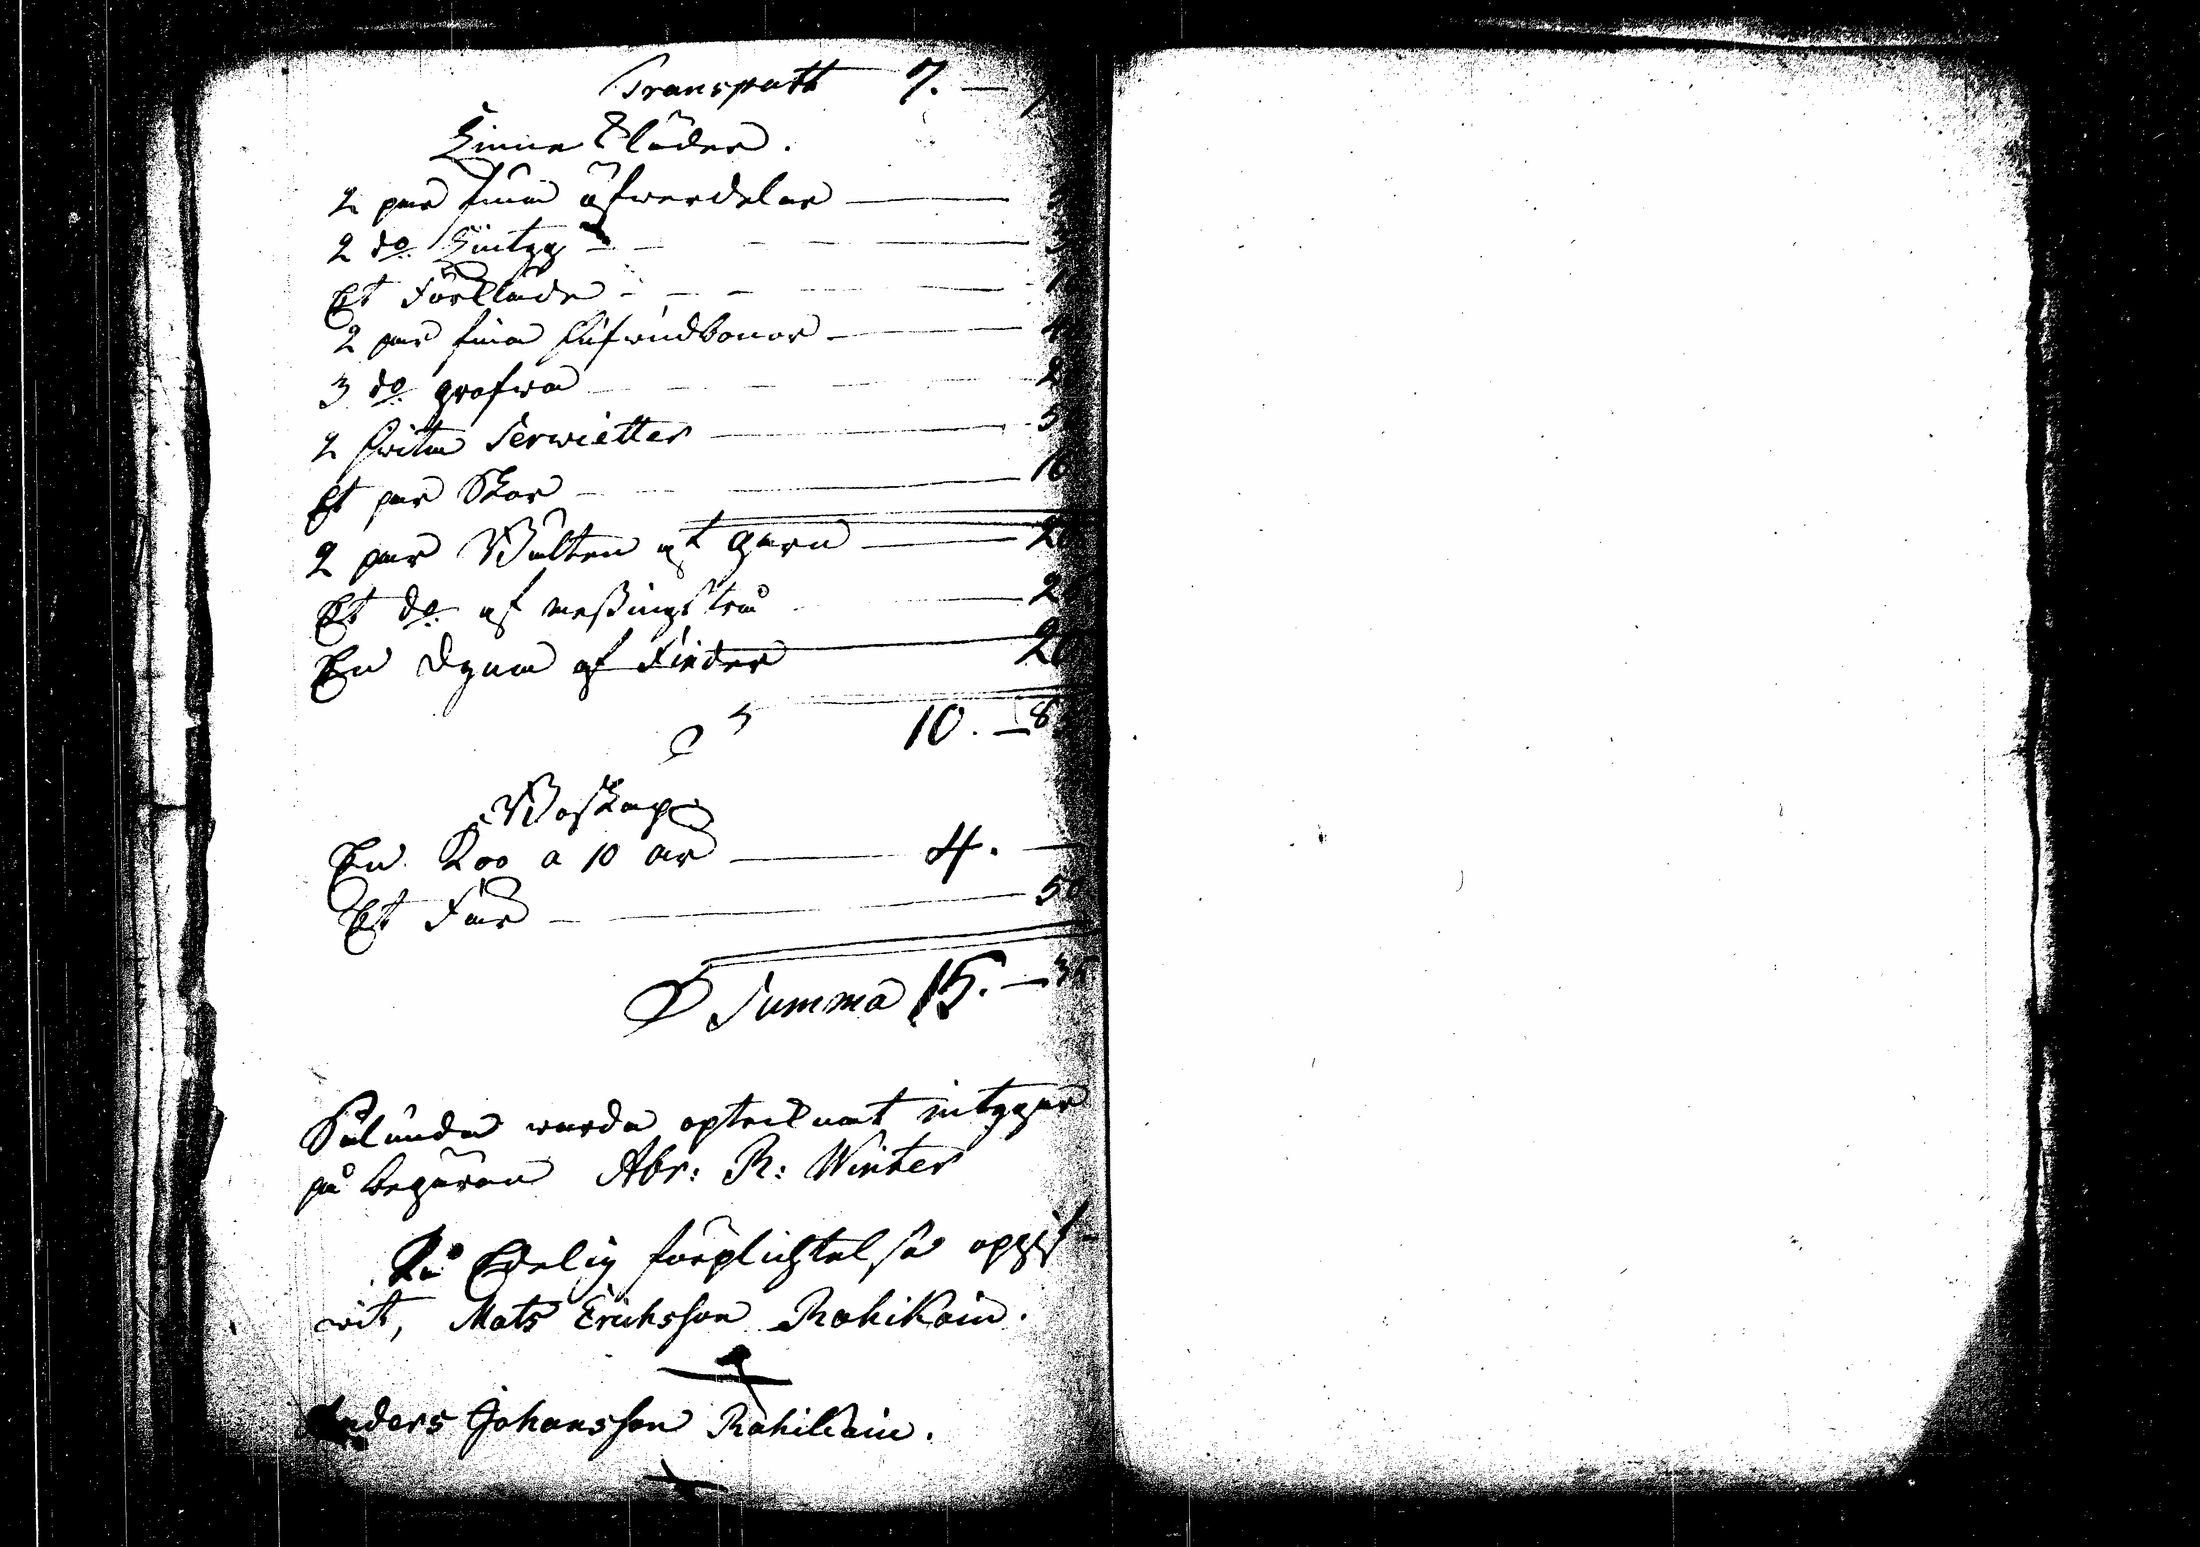 Transportt 7. —
Linne Kläder.
2 par fina öfwerdelar
2 do Lintyg
Et Förkläde
2 par fina hufwudbonor
3 do grofwa
2 hwita Serwietter 5
Et par Skor 10
2 par Wålten af Garn 20
Et do af messings trå 2
En Dyna af Fieder 20
10. — 8
Boskap
En Koo a 10 år 4. —
Et Får 50
Summa 15. — 35
Sålunda warda opteiknat intygar
på begäran Abr: R: Winter
På Edelig förplichtelse opgif-
wit, Mats Ericksson Rahikain.
Anders Johansson Rahikain.